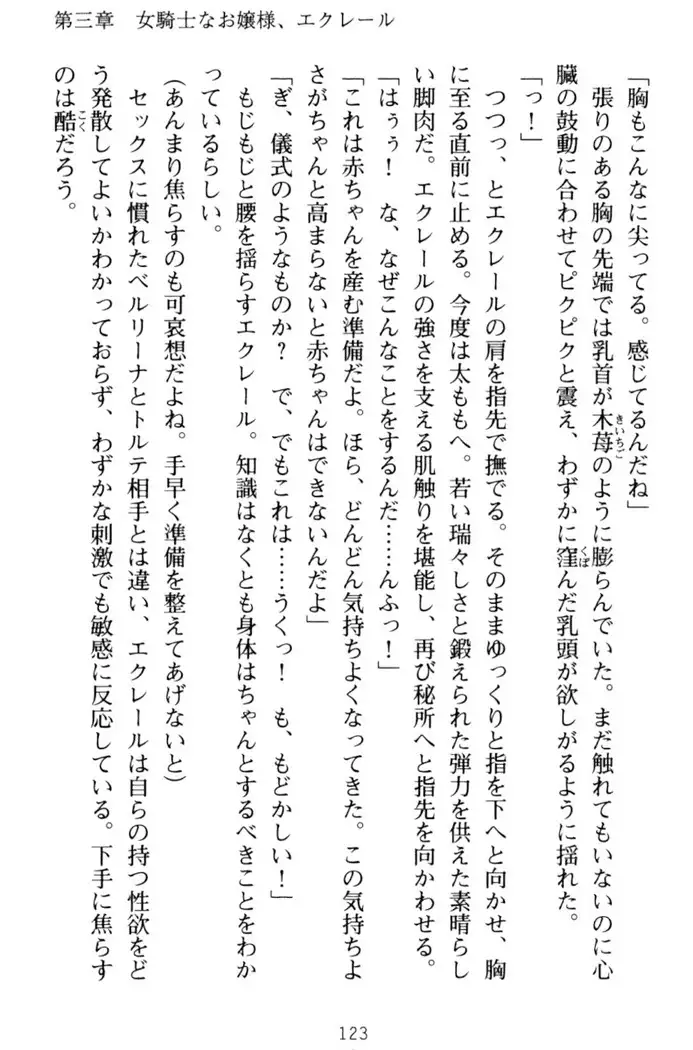 第三章　女騎士なお嬢様、エクレール
「胸もこんなに尖ってる。感じてるんだね」
　張りのある胸の先端では乳首が木苺のように膨らんでいた。まだ触れてもいないのに心
臓の鼓動に合わせてピクピクと震え、わずかに窪んだ乳頭が欲しがるように揺れた。
「っ！」
　つつっ、とエクレールの肩を指先で撫でる。そのままゆっくりと指を下へと向かせ、胸
に至る直前に止める。今度は太ももへ。若い瑞々しさと鍛えられた弾力を供えた素晴らし
い脚肉だ。エクレールの強さを支える肌触りを堪能し、再び秘所へと指先を向かわせる。
「はぅぅ！　な、なぜこんなことをするんだ……んふっ！」
「これは赤ちゃんを産む準備だよ。ほら、どんどん気持ちよくなってきた。この気持ちよ
さがちゃんと高まらないと赤ちゃんはできないんだよ」
「ぎ、儀式のようなものか？　で、でもこれは……うくっ！　も、もどかしい！」
　もじもじと腰を揺らすエクレール。知識はなくとも身体はちゃんとするべきことをわか
っているらしい。
（あんまり焦らすのも可哀想だよね。手早く準備を整えてあげないと）
　セックスに慣れたベルリーナとトルテ相手とは違い、エクレールは自らの持つ性欲をど
う発散してよいかわかっておらず、わずかな刺激でも敏感に反応している。下手に焦らす
のは酷だろう。
きいちご
くぼ
こく
123